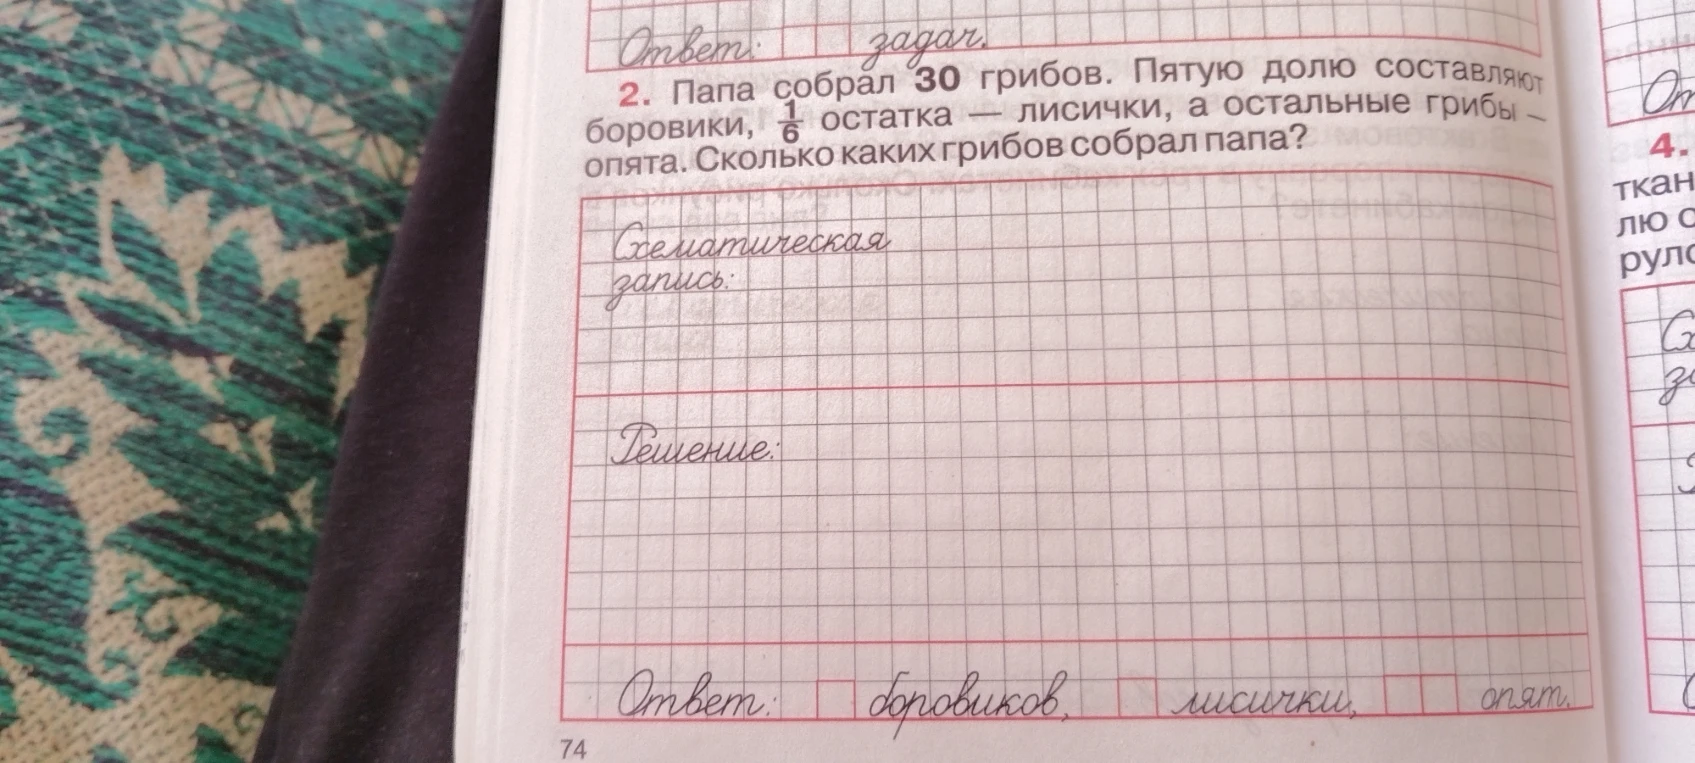 Ответ: задач.
2. Папа собрал 30 грибов. Пятую долю составляют
боровики, 1/6 остатка — лисички, а остальные грибы —
опята. Сколько каких грибов собрал папа?
Схематическая
запись:
Решение:
Ответ: боровиков, лисички, опят.
74
От
4.
ткан
лю с
руло
Сх
за